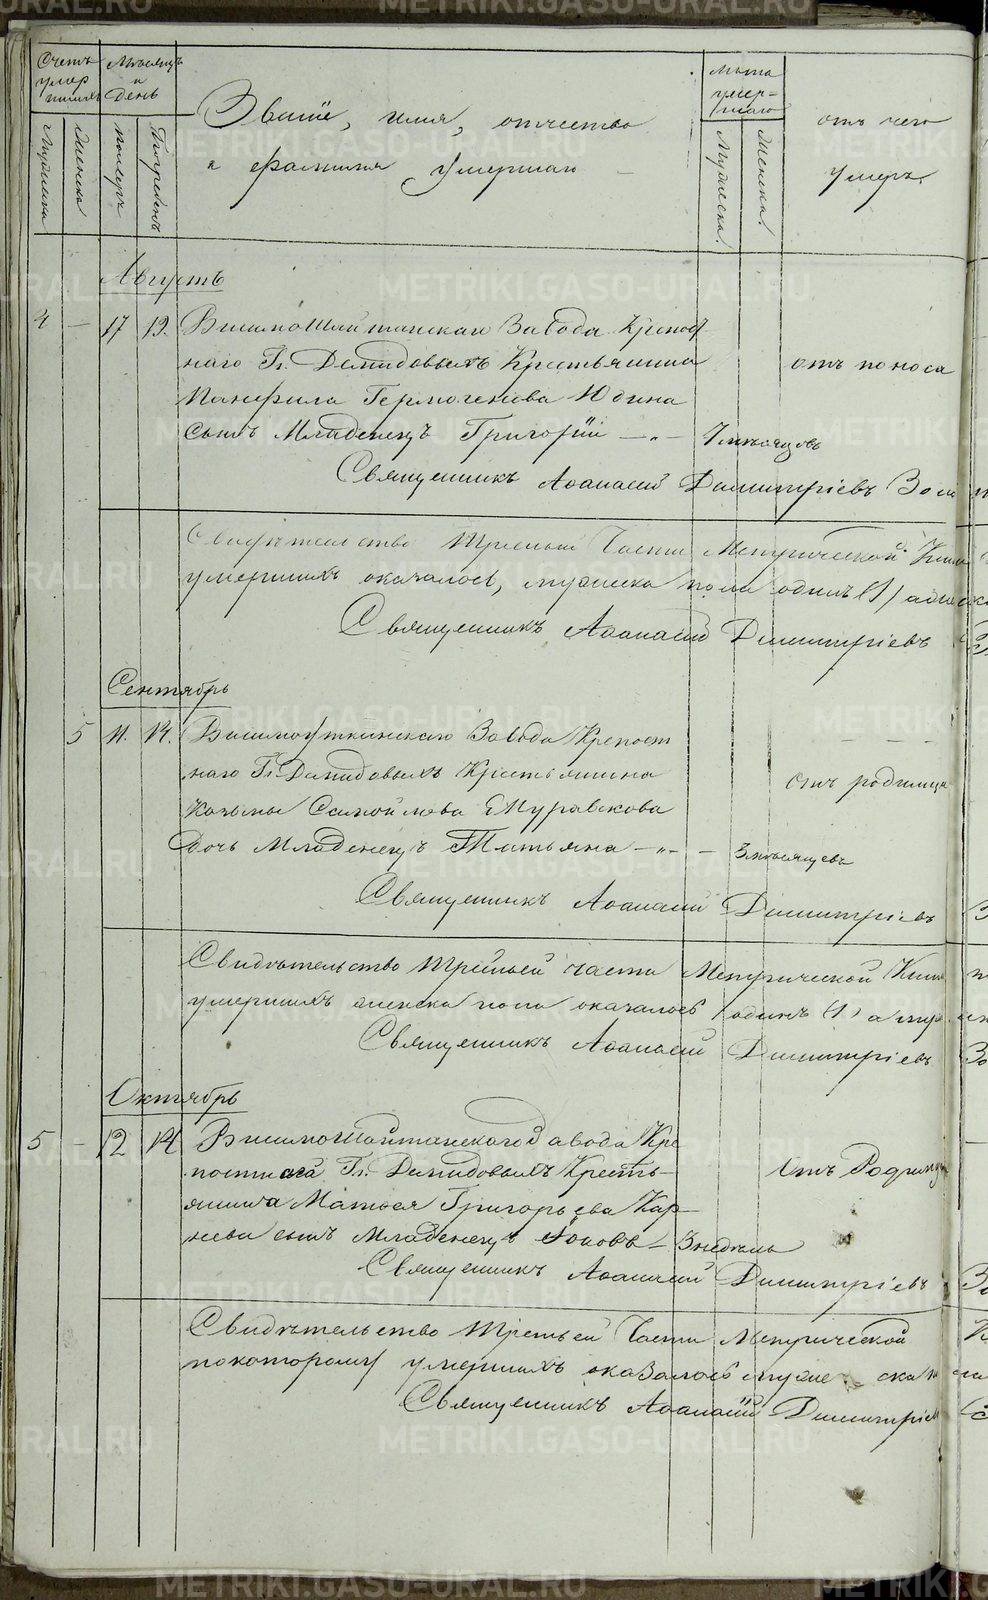 Счетъ умершихъ
Мужеска
Женска
Мѣсяцъ и день
Погребен.
Званіе, имя, отчество
и фамилия умершаго
Лѣта умершаго
Мужеска.
Женска.
отъ чего
умеръ.
Августъ
4 — 17 19. Висимошайтанскаго Завода Крепост
наго Гг. Демидовыхъ Крестьянина
Панфила Гермогенова Юдина
сынъ Младенецъ Григорій — „ — 7 мѣсяцовъ
отъ поноса
Священникъ Аѳанасій Димитріевъ
Свидѣтельство третьей Части Метрической Книги
умершихъ оказалось, мужеска пола одинъ (1) а женска
Священникъ Аѳанасій Димитріевъ
Сентябрь
5 11. 14. Висимоуткинскаго Завода Крепост
наго Гг. Демидовыхъ Крестьянина
Козьмы Самойлова Муравскова
дочь Младенецъ Татьяна — „ — 3 мѣсяцевъ
отъ родимца
Священникъ Аѳанасій Димитріевъ
Свидѣтельство третьей части Метрической Книги
умершихъ женска пола оказалось одинъ (1) а муж
Священникъ Аѳанасій Димитріевъ
Октябрь
5 — 12 14 Висимошайтанскаго Завода Кре
постнаго Гг. Демидовыхъ Кресть-
янина Матвея Григорьева Кар-
неева сынъ Младенецъ Яковъ — 3 недѣль
Отъ Родимца
Священникъ Аѳанасій Димитріевъ
Свидѣтельство третьей Части Метрической
по которому умершихъ оказалось муже ска
Священникъ Аѳанасій Димитріев
METRIKI.GASO-URAL.RU